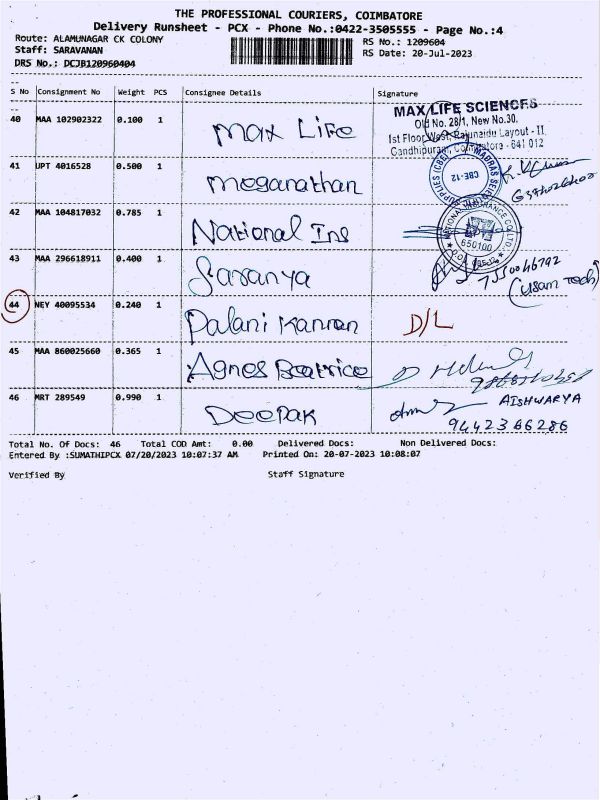 THE PROFESSIONAL COURIERS, COIMBATORE
Delivery Runsheet - PCX - Phone No.:0422-3505555 - Page No.:4
Route: ALAMUNAGAR CK COLONY RS No.: 1209604
Staff: SARAVANAN RS Date: 20-Jul-2023
DRS No.: DCJB120960404
S No Consignment No Weight PCS Consignee Details Signature
40 MAA 102902322 0.100 1 Max Life
MAX LIFE SCIENCES
Old No. 28/1, New No.30,
1st Floor, West, Rajunaidu Layout - II,
Gandhipuram, Coimbatore - 641 012
41 UPT 4016528 0.500 1 Meganathan
MADRAS SUPPLIES (CBE) CBE-12
42 MAA 104817032 0.785 1 National Ins
NATIONAL INSURANCE CO. LTD. 650100
43 MAA 296618911 0.400 1 Saranya
44 NEY 40095534 0.240 1 Palani Kannan D/L
45 MAA 860025660 0.365 1 Agnes Beatrice
46 MRT 289549 0.990 1 Deepak AISHWARYA
9442366286
Total No. Of Docs: 46 Total COD Amt: 0.00 Delivered Docs: Non Delivered Docs:
Entered By :SUMATHIPCX 07/20/2023 10:07:37 AM Printed On: 20-07-2023 10:08:07
Verified By Staff Signature